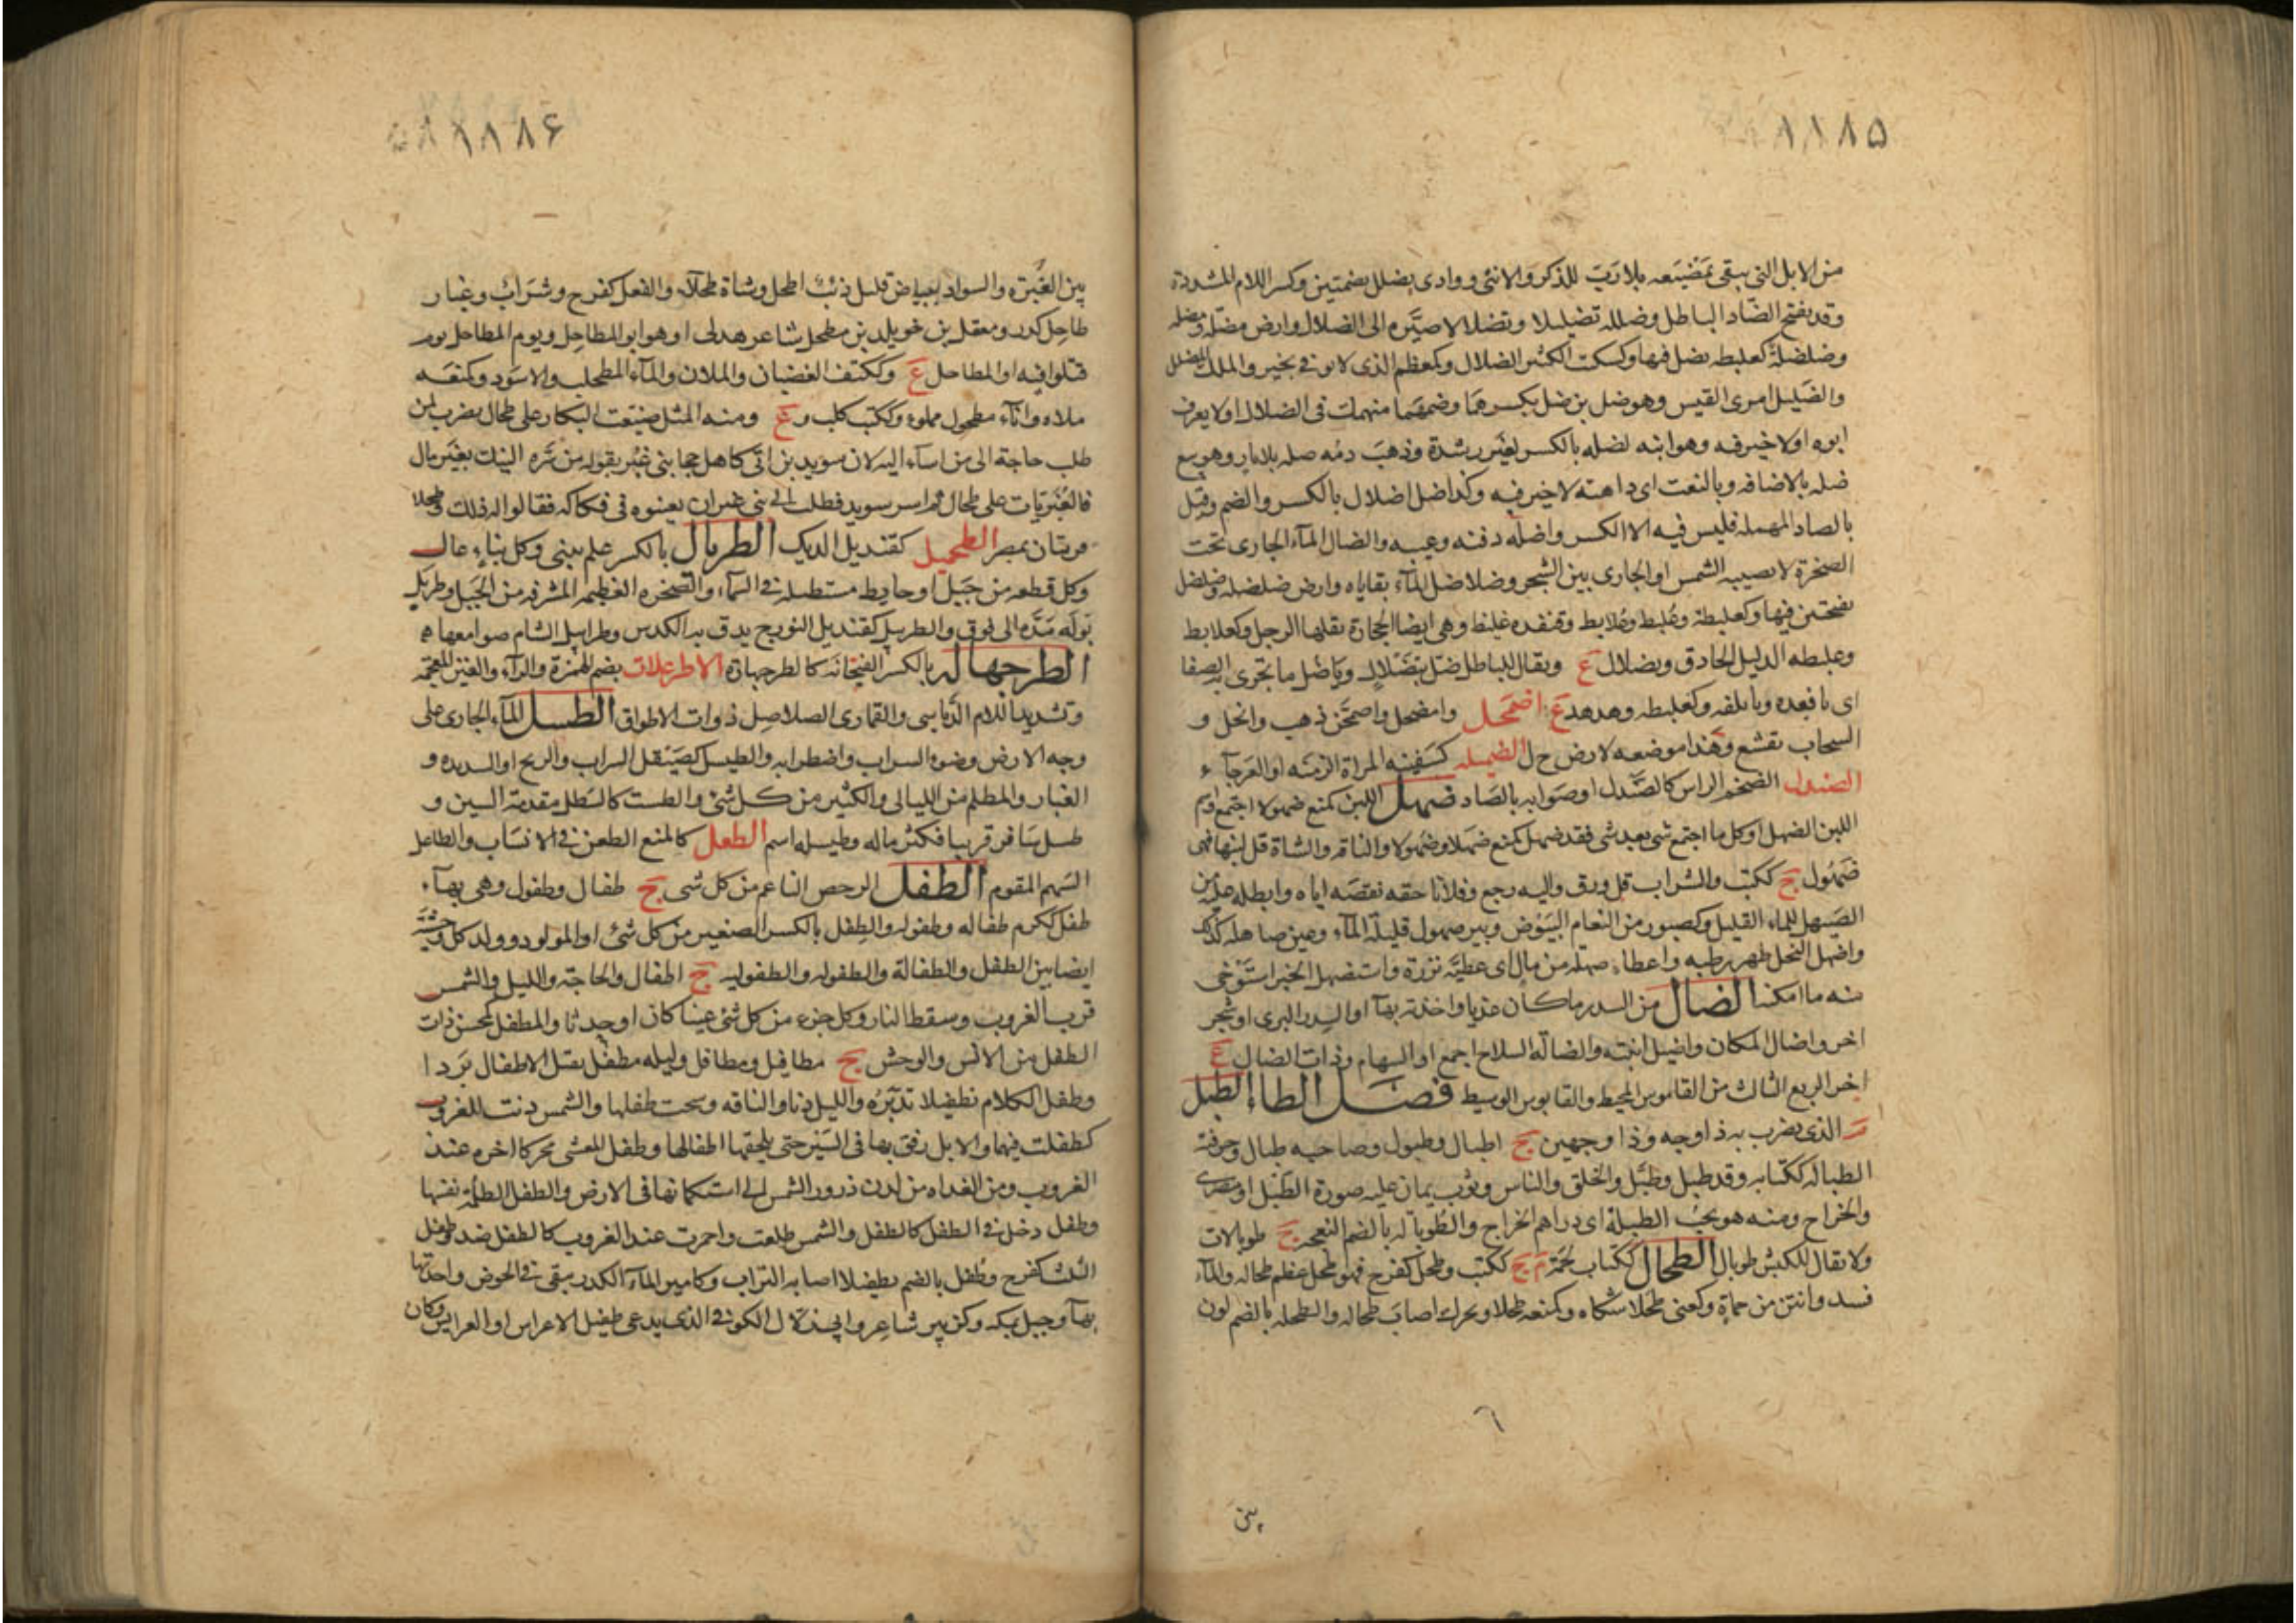 ۱۱۸۵
من الابل التى يبقى بمضيعه بلا رب للذكر والانثى ووادى بضلل بضمتين وكسر اللام المشددة
وقد يفتح الضاد الباطل وضلله تضليلا وتضلالا صيره الى الضلال وارض مضلة ومضله
وضلضلة كعلبطه يضل فيها وكسكت الكثير الضلال وكمعظم الذى لا يوفى بخير والملك المضلل
والضليل امرى القيس وهو ضل بن ضل بكسرهما وضمهما منهمك فى الضلال او لا يعرف
ابوه او لا خير فيه وهو ابنه لضله بالكسر لغير رشدة وذهب دمه ضله بلا ثار وهو تبع
ضله بالاضافه وبالنعت اى داهيه لا خير فيه وكذا ضل اضلال بالكسر والضم وقيل
بالصاد المهمله فليس فيه الا الكسر واضله دفنه وغيبه والضال الماء الجارى تحت
الصخرة لا يصيبه الشمس او الجارى بين الشجر وضلاضل الماء بقاياه وارض ضلضله وضلضل
بفتحتين فيهما وكعلبطة وعلبط وعلابط وقنفده غليظ وهى ايضا الحجارة يقلها الرجل وكعلابط
وعلبطه الدليل الحاذق وبضلال ع ويقال للباطل ضل بتضلال ويا ضل ما تجرى به العصا
اى يا فقده ويا تلفه وكعلبطه وهدهد ع اضمحل وامضحل واضمحن ذهب وانحل و
السحاب تقشع وهذا موضعه لا ض ح ل الضميله كسفينه المراة الزمنه او العرجاء
الضندل الضخم الراس كالصندل او صوابه بالصاد ضهل اللبن كمنع ضهولا اجتمع واسم
اللبن الضهل او كل ما اجتمع شى بعد شى فقد ضهل كمنع ضهلا وضهولا والناقه والشاة قل لبنها فهى
ضهول ج ككتب والشراب قل ورق واليه رجع وفلانا حقه نقصه اياه وابطله عليه من
الضهل للماء القليل وكصبور من النعام البيوض وبير ضهول قليلة الماء وعين ضاهله كذلك
واضهل النخل ظهر رطبه واعطاه ضهله من مال اى عطيه نزرة واستضهل الخبر استوخى
منه ما امكنه الضال من السدر ما كان عذيا واحدته بهاء او السدر البرى او شجر
اخر واضال المكان واضيل انبته والضالة السلاح اجمع او السهام وذات الضال ع
اخر الربع الثالث من القاموس المحيط والقابوس الوسيط فصل الطاء الطبل
م الذى يضرب به ذا وجه وذا وجهين ج اطبال وطبول وصاحبه طبال وحرفته
الطباله ككتابه وقد طبل وطبل والخلق والناس وثوب يمان عليه صورة الطبل او مصرى
والخراج ومنه هو يحب الطبلة اى دراهم الخراج والطوباله بالضم النعجه ج طوبالات
ولا يقال للكبش طوبال الطحال ككتاب لحمة م ج ككتب وطحل كفرح فهو طحل عظم طحاله والماء
فسد وانتن من حماة وكعنى طحلا شكاه وكمنعه طحلا ويحرك اصاب طحاله والطحله بالضم لون
٦
بين
۱۱۸۶
بين الغبرة والسواد ببياض قليل ذئب اطحل وشاة طحلاء والفعل كفرح وشراب وغبار
طاحل كدر ومعقل بن خويلد بن مطحل شاعر هذلى او هو ابو المطاحل ويوم المطاحل يوم
قتلوا فيه او المطاحل ع وككتف الغضبان والملان والماء المطحلب والاسود وكمنعه
ملاه واناء مطحول مملوء وككتب كلب و ع ومنه المثل ضيعت البكار على طحال يضرب لمن
طلب حاجة الى من اساء اليه لان سويد بن ابى كاهل هجا بنى غبر بقوله من سره النيك بغير مال
فالغبريات على طحال ثم اسر سويد فطلب الى بنى غبر ان يعينوه فى فكاكه فقالوا له ذلك وطحلا
قريتان بمصر الطحميل كقنديل الديك الطربال بالكسر علم يبنى وكل بناء عال
وكل قطعه من جبل او حايط مستطيله فى السماء والصخره العظيمه المشرفه من الجبل وطربل
بوله مده الى فوق والطربيل كقنديل النورج يدق به الكدس وطرابيل الشام صوامعها ه
الطرجهاله بالكسر الفنجانه كالطرجهارة الاطرغلات بضم الهمزة والراء والغين المعجمه
وتشديد اللام الدباسى والقمارى الصلاصل ذوات الاطواق الطسل الماء الجارى على
وجه الارض وضوء السراب واضطرابه والطيسل كصيقل السراب والريح او الشديده و
الغبار والمظلم من الليالى والكثير من كل شئ والطست كالسطل مقدمة السين و
طسل سافر قريبا فكثر ماله وطيسله اسم الطعل كالمنع الطعن فى الانساب والطاعل
السهم المقوم الطفل الرخص الناعم من كل شى ج طفال وطفول وهى بهاء
طفل ككرم طفاله وطفوله والطفل بالكسر الصغير من كل شئ او المولود وولد كل وحشيه
ايضا بين الطفل والطفالة والطفوله والطفوليه ج اطفال والحاجة والليل والشمس
قرب الغروب وسقط النار وكل جزء من كل شئ عينا كان او حدثا والمطفل كمحسن ذات
الطفل من الانس والوحش ج مطافيل ومطافل وليله مطفل تقتل الاطفال بردا
وطفل الكلام تطفيلا تدبره والليل دنا والناقه رشحت طفلها والشمس دنت للغروب
كطفلت فيهما والابل رفق بها فى السير حتى يلحقها اطفالها وطفل العشى محركا اخره عند
الغروب ومن الغداه من لدن ذرور الشمس الى استكمانها فى الارض والطفل الظلمة نفسها
وطفل دخل فى الطفل كاطفل والشمس طلعت واحمرت عند الغروب كاطفل ضد وطفل
النبت كفرح وطفل بالضم تطفيلا اصابه التراب وكامير الماء الكدر يبقى فى الحوض واحدتها
بهاء وجبل بمكه وكزبير شاعر وابن زلال الكوفى الذى يدعى طفيل الاعراس او العرايس وكان